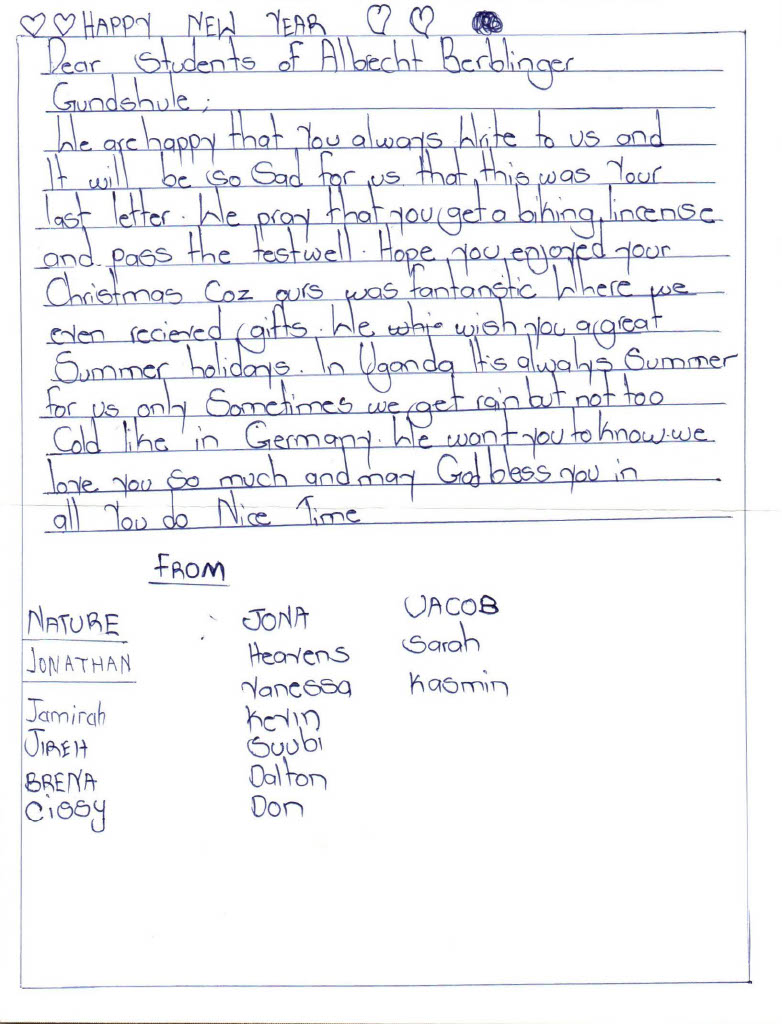 ♡♡HAPPY NEW YEAR ♡ ♡
Dear Students of Albrecht Berblinger
Gundshule;
We are happy that you always Write to us and
It will be so Sad for us that this was Your
last letter. We pray that you get a biking lincense
and pass the test well. Hope you enjoyed your
Christmas Coz ours was fantanstic Where we
even recieved gifts. We wish you a great
Summer holidays. In Uganda It's always Summer
for us only Sometimes we get rain but not too
Cold like in Germany. We want you to know we
love you so much and may God bless you in
all You do Nice Time
FROM
NATURE
JONATHAN
Jamirah
JIREH
BRENA
Cissy
JONA
Heavens
Vanessa
Kevin
Suubi
Dalton
Don
JACOB
Sarah
Kasmin